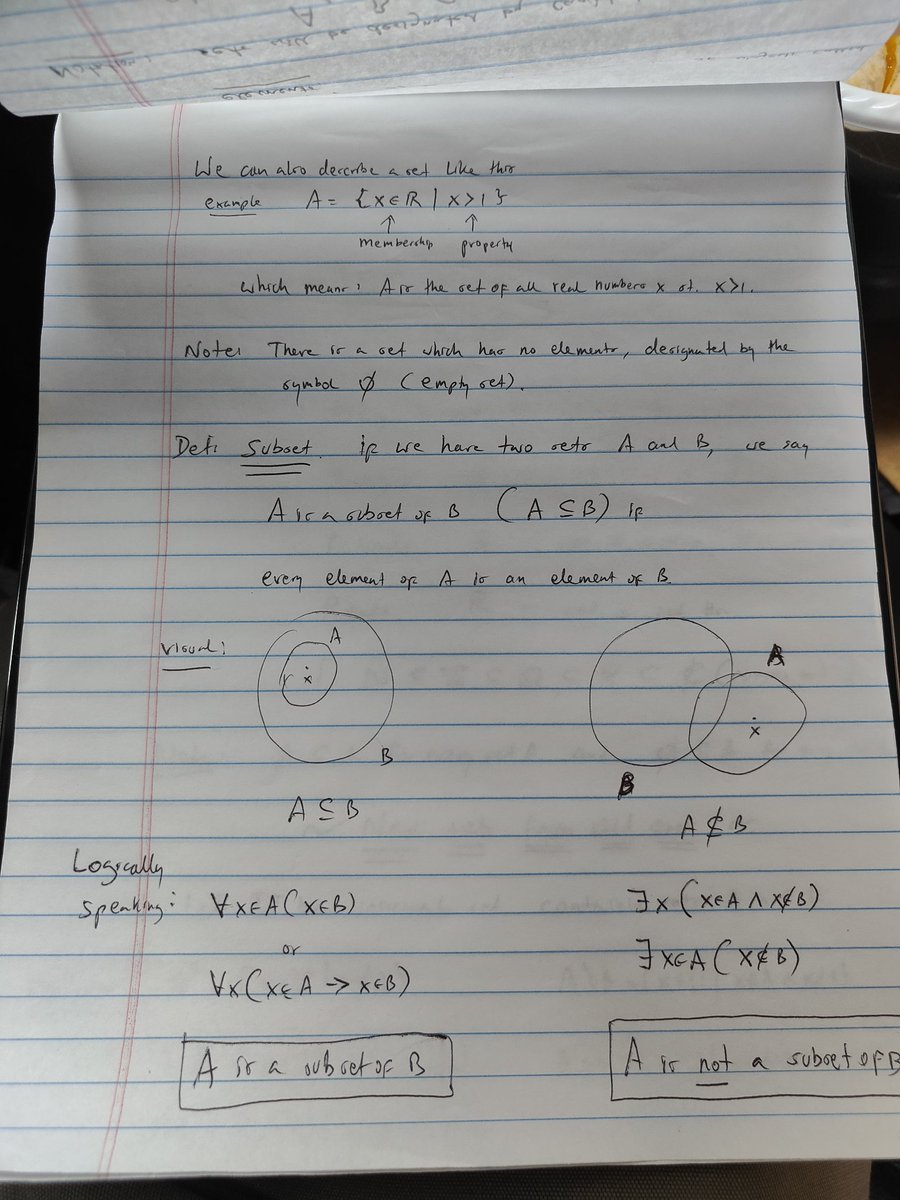 We can also describe a set like this
example A = {x∈ℝ | x>1}
↑ ↑
membership property
which means: A is the set of all real numbers x st. x>1.
Note: There is a set which has no elements, designated by the
symbol ∅ (empty set).
Def: Subset. if we have two sets A and B, we say
A is a subset of B (A ⊆ B) if
every element of A is an element of B.
Visual:
A
x
B
A ⊆ B
A
x
B
A ⊈ B
Logically
speaking:
∀x∈A(x∈B)
or
∀x(x∈A → x∈B)
A is a subset of B
∃x(x∈A ∧ x∉B)
∃x∈A(x∉B)
A is not a subset of B